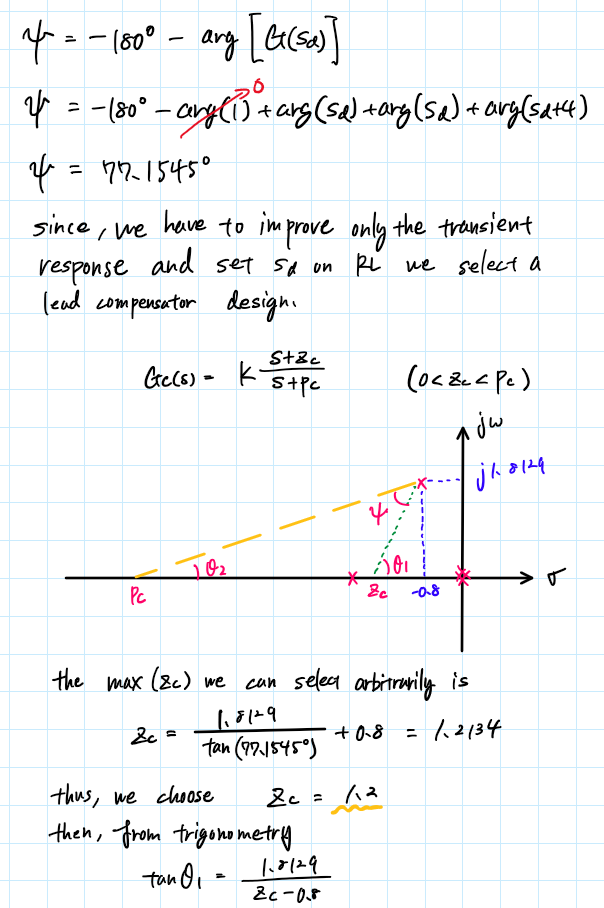 ψ = -180° - arg [G(s_d)]
ψ = -180° - arg(1) + arg(s_d) + arg(s_d) + arg(s_d+4)
0
ψ = 77.1545°
since, we have to improve only the transient
response and set s_d on RL we select a
lead compensator design.
Gc(s) = K (s+zc)/(s+pc) (0 < zc < pc)
jω
j1.8129
ψ
θ2
θ1
σ
pc
zc
-0.8
the max (zc) we can select arbitrarily is
zc = 1.8129/tan(77.1545°) + 0.8 = 1.2134
thus, we choose zc = 1.2
then, from trigonometry
tanθ1 = 1.8129/(zc - 0.8)